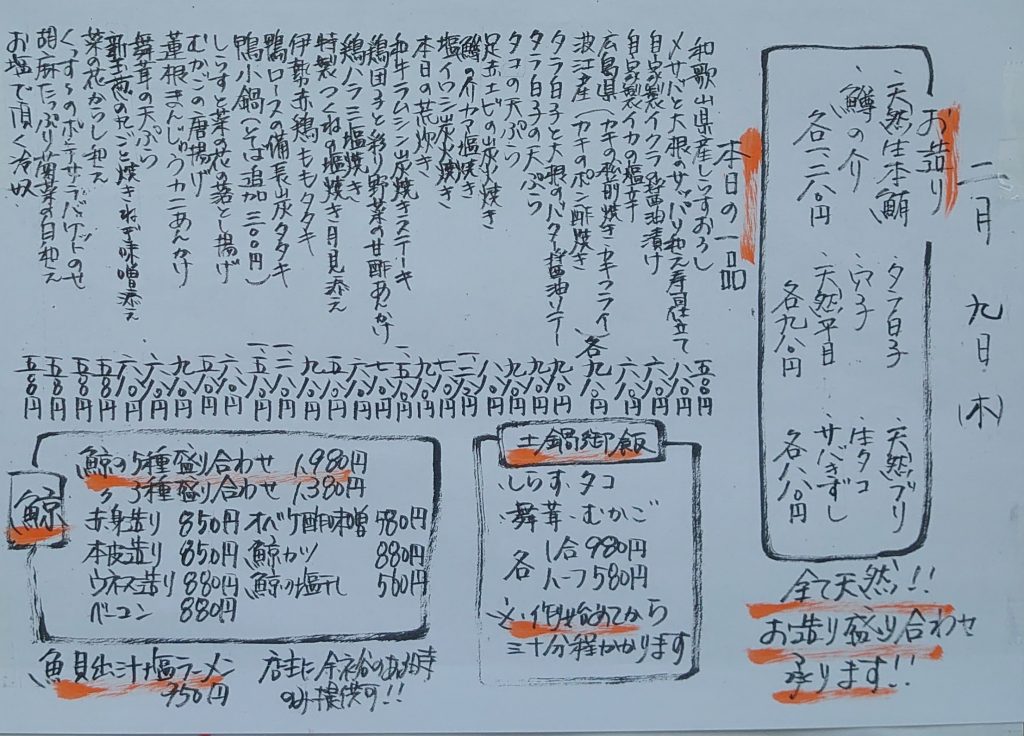 二月 九日 (木)
お造り
天然生本鮪
鱒の介
各一二八〇円
タラ白子
穴子
天然平目
各九八〇円
天然ブリ
生タコ
サバきずし
各八八〇円
全て天然!!
お造り盛り合わせ
承ります!!
本日の一品
和歌山県産しらすおろし 五八〇円
〆サバと大根のサッパリ和え寿司仕立て 八八〇円
自家製イクラの醤油漬け
自家製イカの塩辛
広島県 (カキの松前焼き カキフライ
波江産 (カキのポン酢焼き 各九八〇円
タラ白子と大根のバター醤油ソテー 九八〇円
タラ白子の天ぷら 九八〇円
タコの天ぷら
足赤エビの炭火焼き
鱒の介カマ塩焼き
塩イワシ炭火焼き
本日の荒炊き
和牛ラムシン炭火焼きステーキ
鶏団子と彩り野菜の甘酢あんかけ
鶏ハラミ塩焼き
特製つくねの塩焼き月見添え
伊勢赤鶏ももタタキ
鴨ロースの備長炭タタキ
鴨小鍋(そば追加三〇〇円)
しらすと菜の花の落とし揚げ
むかごの唐揚げ
蓮根まんじゅうカニあんかけ
舞茸の天ぷら
新玉葱の丸ごと焼きねぎ味噌添え
菜の花からし和え
くんすらのポテサラバゲットのせ
胡麻たっぷり菊菜の白和え 五八〇円
お塩で頂く冷奴 五八〇円
鯨
鯨の5種盛り合わせ 1,980円
〃 3種盛り合わせ 1,380円
赤身造り 850円 オバケ酢味噌 580円
本皮造り 850円 鯨カツ 880円
ウネス造り 880円 鯨の塩干し 500円
ベーコン 880円
土鍋御飯
しらす・タコ
舞茸・むかご
各 1合 980円
ハーフ 580円
※作り始めてから
三十分程かかります
魚貝出汁塩ラーメン
950円
店主に余裕のある時
のみ提供可!!